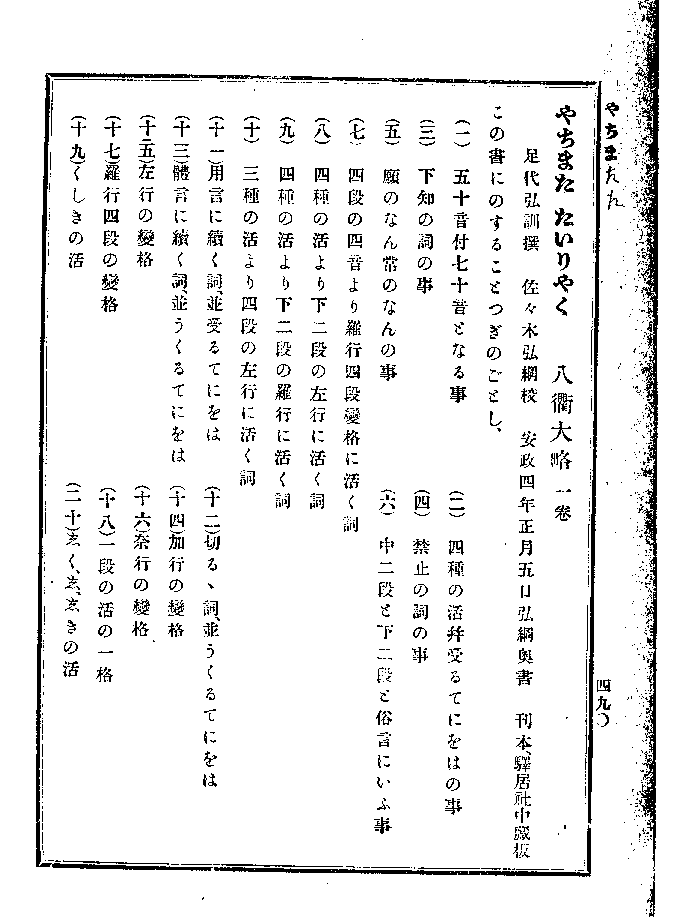 やちまた
やちまた たいりやく 八衢大略 一卷
足代弘訓撰 佐々木弘綱校 安政四年正月五日弘綱奧書 刊本、驛居社中藏板
この書にのすることつぎのごとし、
(一) 五十音付七十音となる事
(二) 四種の活幷受るてにをはの事
(三) 下知の詞の事
(四) 禁止の詞の事
(五) 願のなん常のなんの事
(六) 中二段と下二段と俗言にいふ事
(七) 四段の四音より羅行四段變格に活く詞
(八) 四種の活より下二段の左行に活く詞
(九) 四種の活より下二段の羅行に活く詞
(十) 三種の活より四段の左行に活く詞
(十一)用言に續く詞、並受るてにをは
(十二)切るゝ詞、並うくるてにをは
(十三)體言に續く詞、並うくるてにをは
(十四)加行の變格
(十五)左行の變格
(十六)奈行の變格
(十七)羅行四段の變格
(十八)一段の活の一格
(十九)くしきの活
(二十)志く、志、志きの活
四九〇